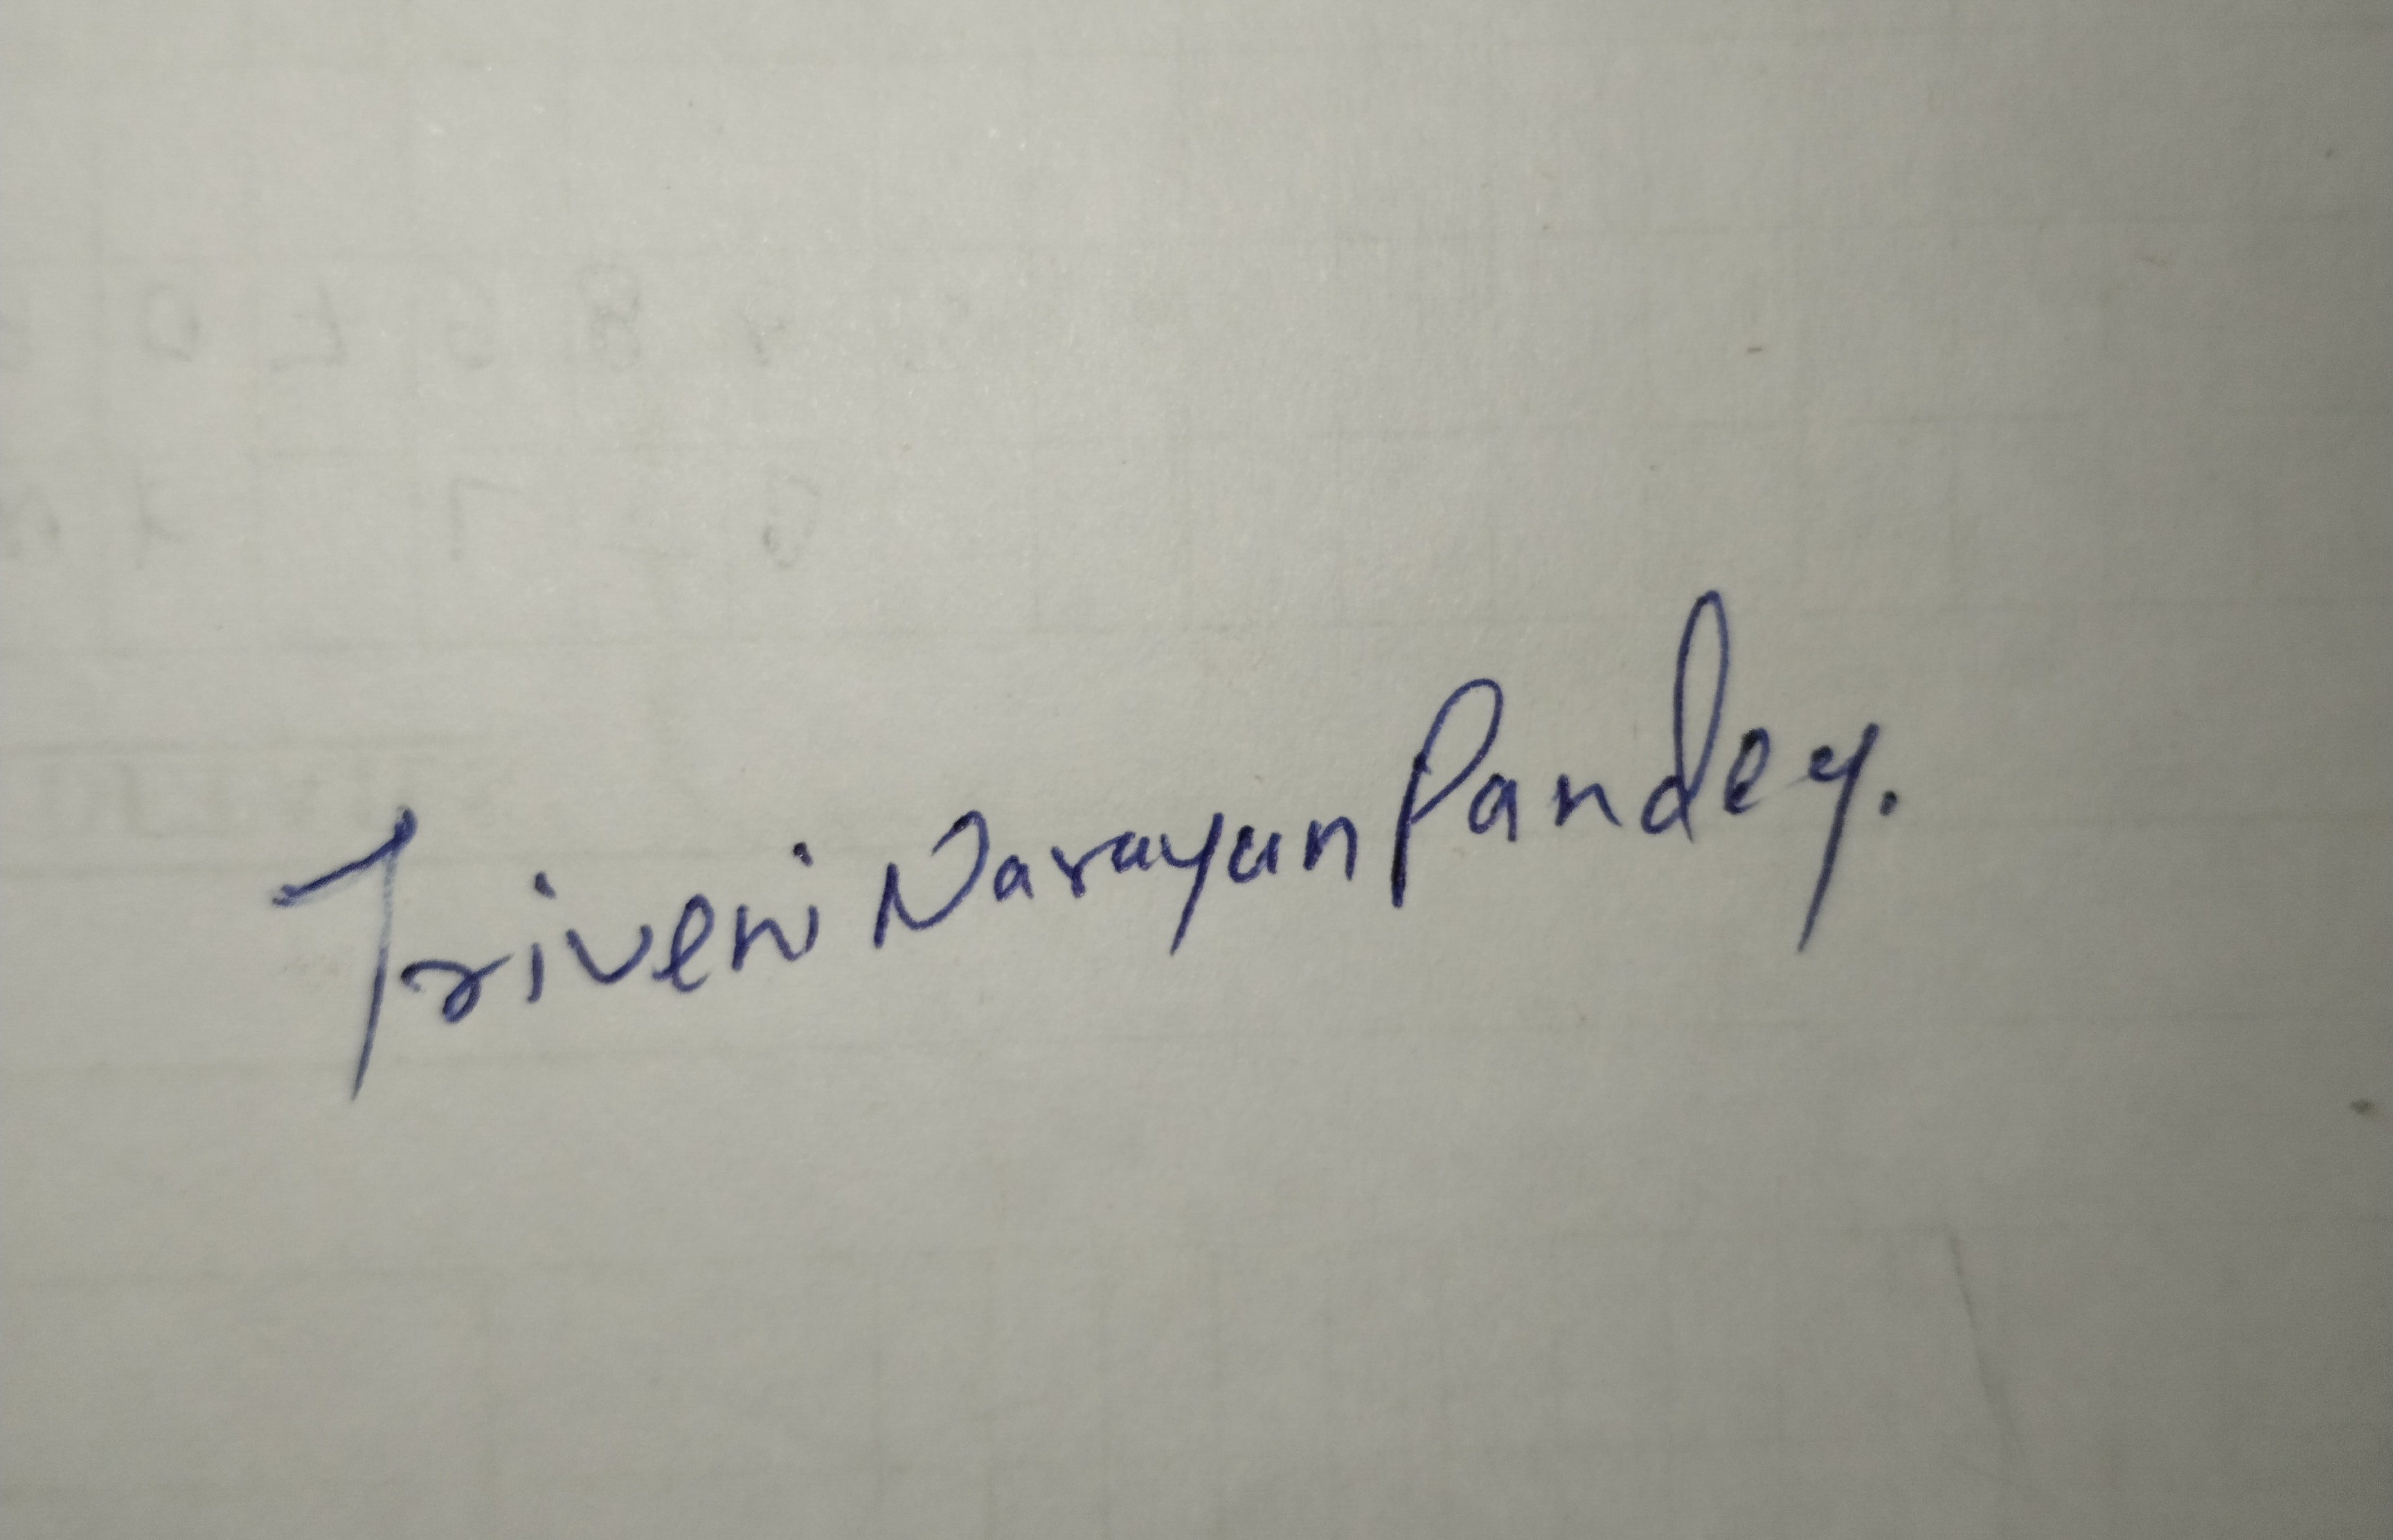 Triveni Narayan Pandey.